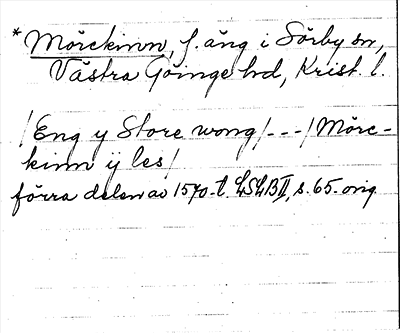 * Mörckinn, f. äng i Sörby sn,
Västra Göinge hd, Krist. l.
/Eng y Store wong/---/Mörc-
kinn ÿ les/
förra delen av 1570-t. LSLB II, s. 65. orig